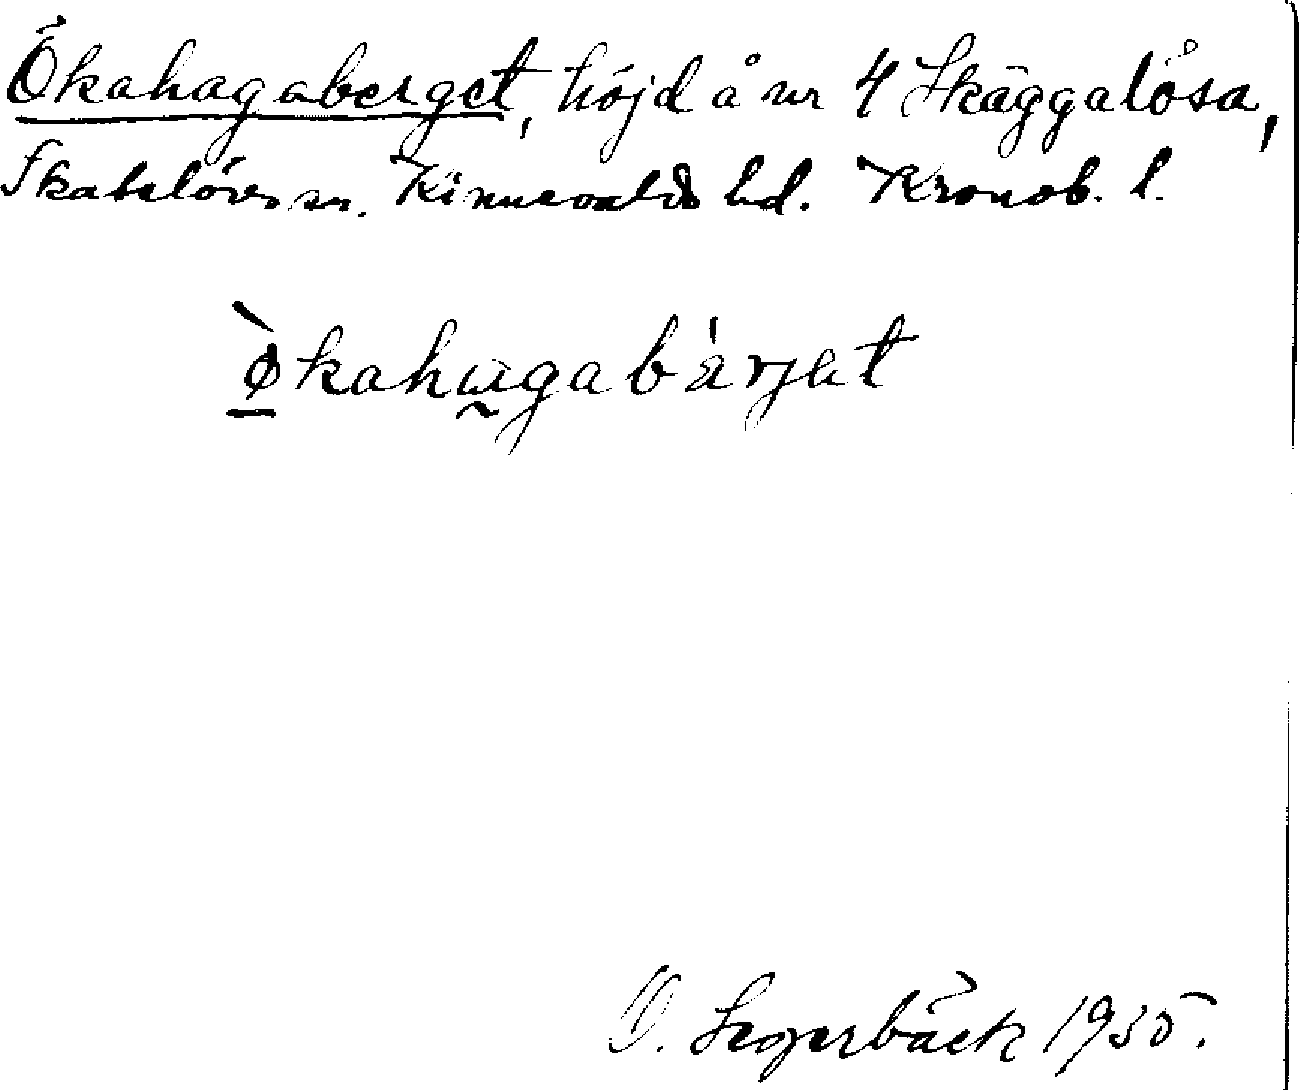 Ökahagaberget, höjd å nr 4 Skäggalösa,
Skatelövs sn. Kinnevalds hd. Kronob. l.
ø̀kahagabärjet
O. Segerbäck 1935.